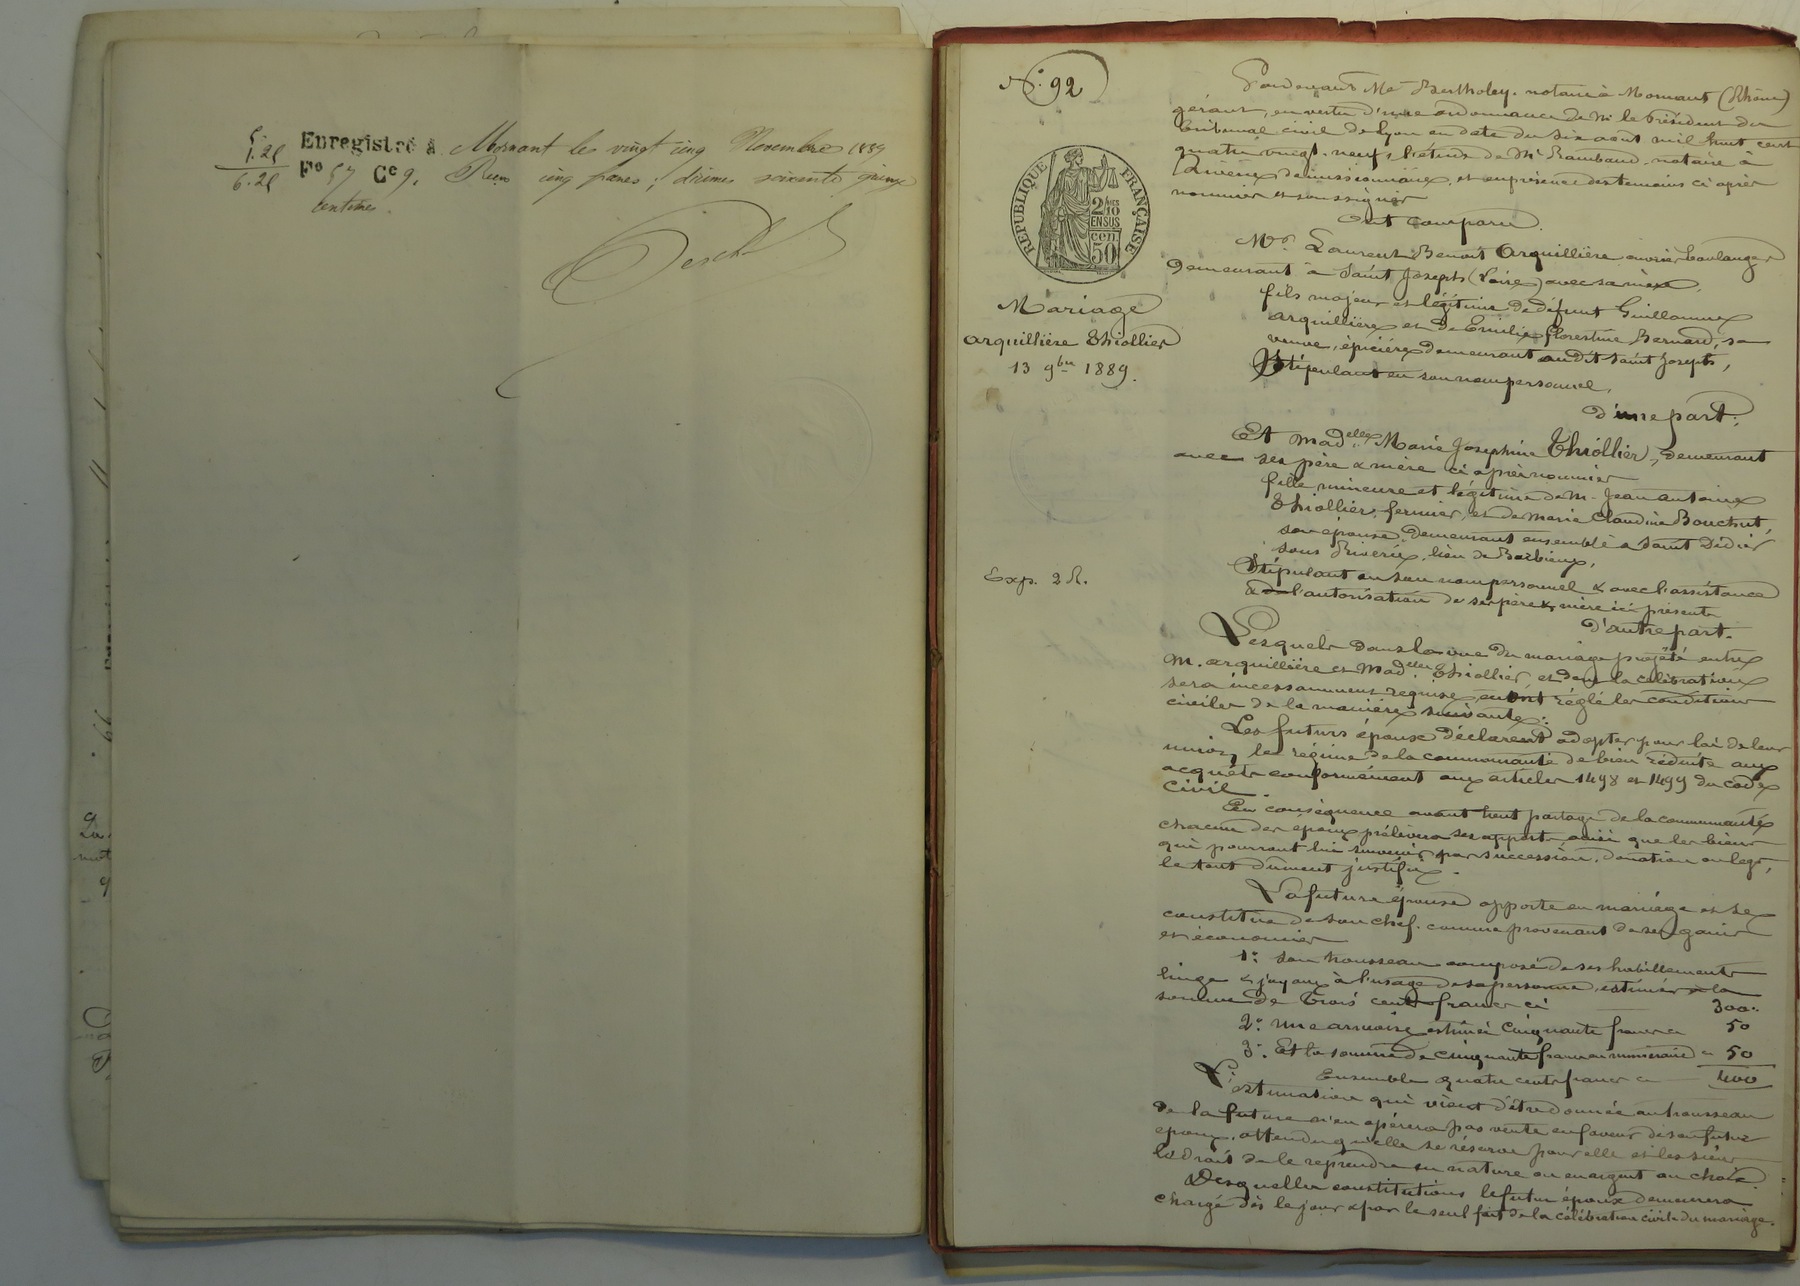 5.25
6.25
Enregistré à Mornant le vingt cinq Novembre 1889
Fo 57 Ce 9, Reçu cinq francs ; décimes soixante quinze
centimes.
N° 92
RÉPUBLIQUE FRANÇAISE
2/10 EN SUS
50 cen.
Mariage
Arquillière Thiollier
13 9bre 1889.
Exp. 2 R.
Pardevant Me Bertholey, notaire à Mornant (Rhône)
gérant, en vertu d'une ordonnance de Mr le Président du
tribunal civil de Lyon en date du six août mil huit cent
quatre vingt-neuf, l'étude de Me Rambaud, notaire à
Riverie, démissionnaire, et en présence des témoins ci après
nommés et soussignés
Ont comparu
Mr Laurent Benoit Arquillière ouvrier boulanger
demeurant à Saint Joseph (Loire) avec sa mère
fils majeur et légitime de défunt Guillaume
Arquillière et de Emilie Florestine Bernard, sa
veuve, épicière demeurant audit Saint Joseph,
Stipulant en son nom personnel,
d'une part.
Et Madelle Marie Josephine Thiollier, demeurant
avec ses père & mère ci après nommés
fille mineure et légitime de M. Jean Antoine
Thiollier, fermier, et de Marie Claudine Bouchut,
son épouse, demeurant ensemble à Saint Didier
sous Riverie, lieu de Barbieux,
Stipulant en son nom personnel & avec l'assistance
& de l'autorisation de ses père & mère ici présents
d'autre part.
Lesquels dans la vue du mariage projeté entre
M. Arquillière et Madelle Thiollier et dont la célébration
sera incessamment requise, en ont réglé les conditions
civiles de la manière suivante :
Les futurs époux déclarent adopter pour loi de leur
union, le régime de la communauté de biens réduite aux
acquêts conformément aux articles 1498 et 1499 du code
civil.
En conséquence avant tout partage de la communauté
chacun des époux prélèvera ses apports ainsi que les biens
qui pourront lui survenir par succession, donation ou legs,
le tout dûment justifié.
La future épouse apporte en mariage et se
constitue de son chef, comme provenant de ses gains
et économies
1° Son trousseau composé de ses habillements
linge & joyaux à l'usage de sa personne, estimés à la
somme de trois cents francs ci 300
2° une armoire estimée cinquante francs ci 50
3° Et la somme de cinquante francs en numéraire ci 50
Ensemble quatre cents francs ci 400
L'estimation qui vient d'être donnée au trousseau
de la future n'en opérera pas vente en faveur de son futur
époux, attendu qu'elle se réserve pour elle et les siens
le droit de le reprendre en nature ou en argent au choix.
Desquelles constitutions le futur époux demeurera
chargé dès le jour & par le seul fait de la célébration civile du mariage.